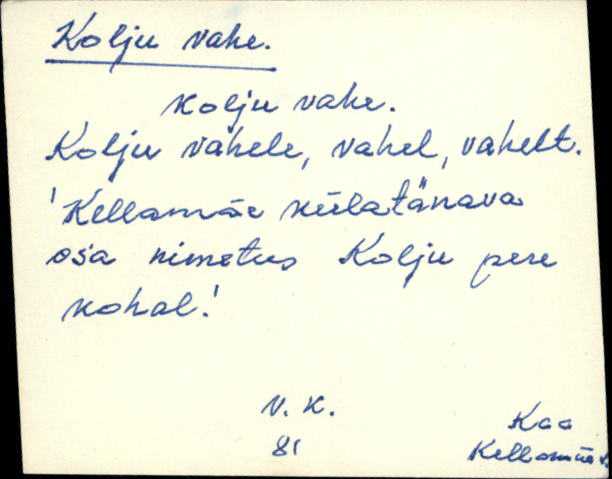 Kolju vahe.
kolju vahe.
Kolju vahele, vahel, vahelt.
'Kellamäe külatänava
osa nimetus Kolju pere
kohal.'
V. K.
81
Kaa
Kellamäe k.